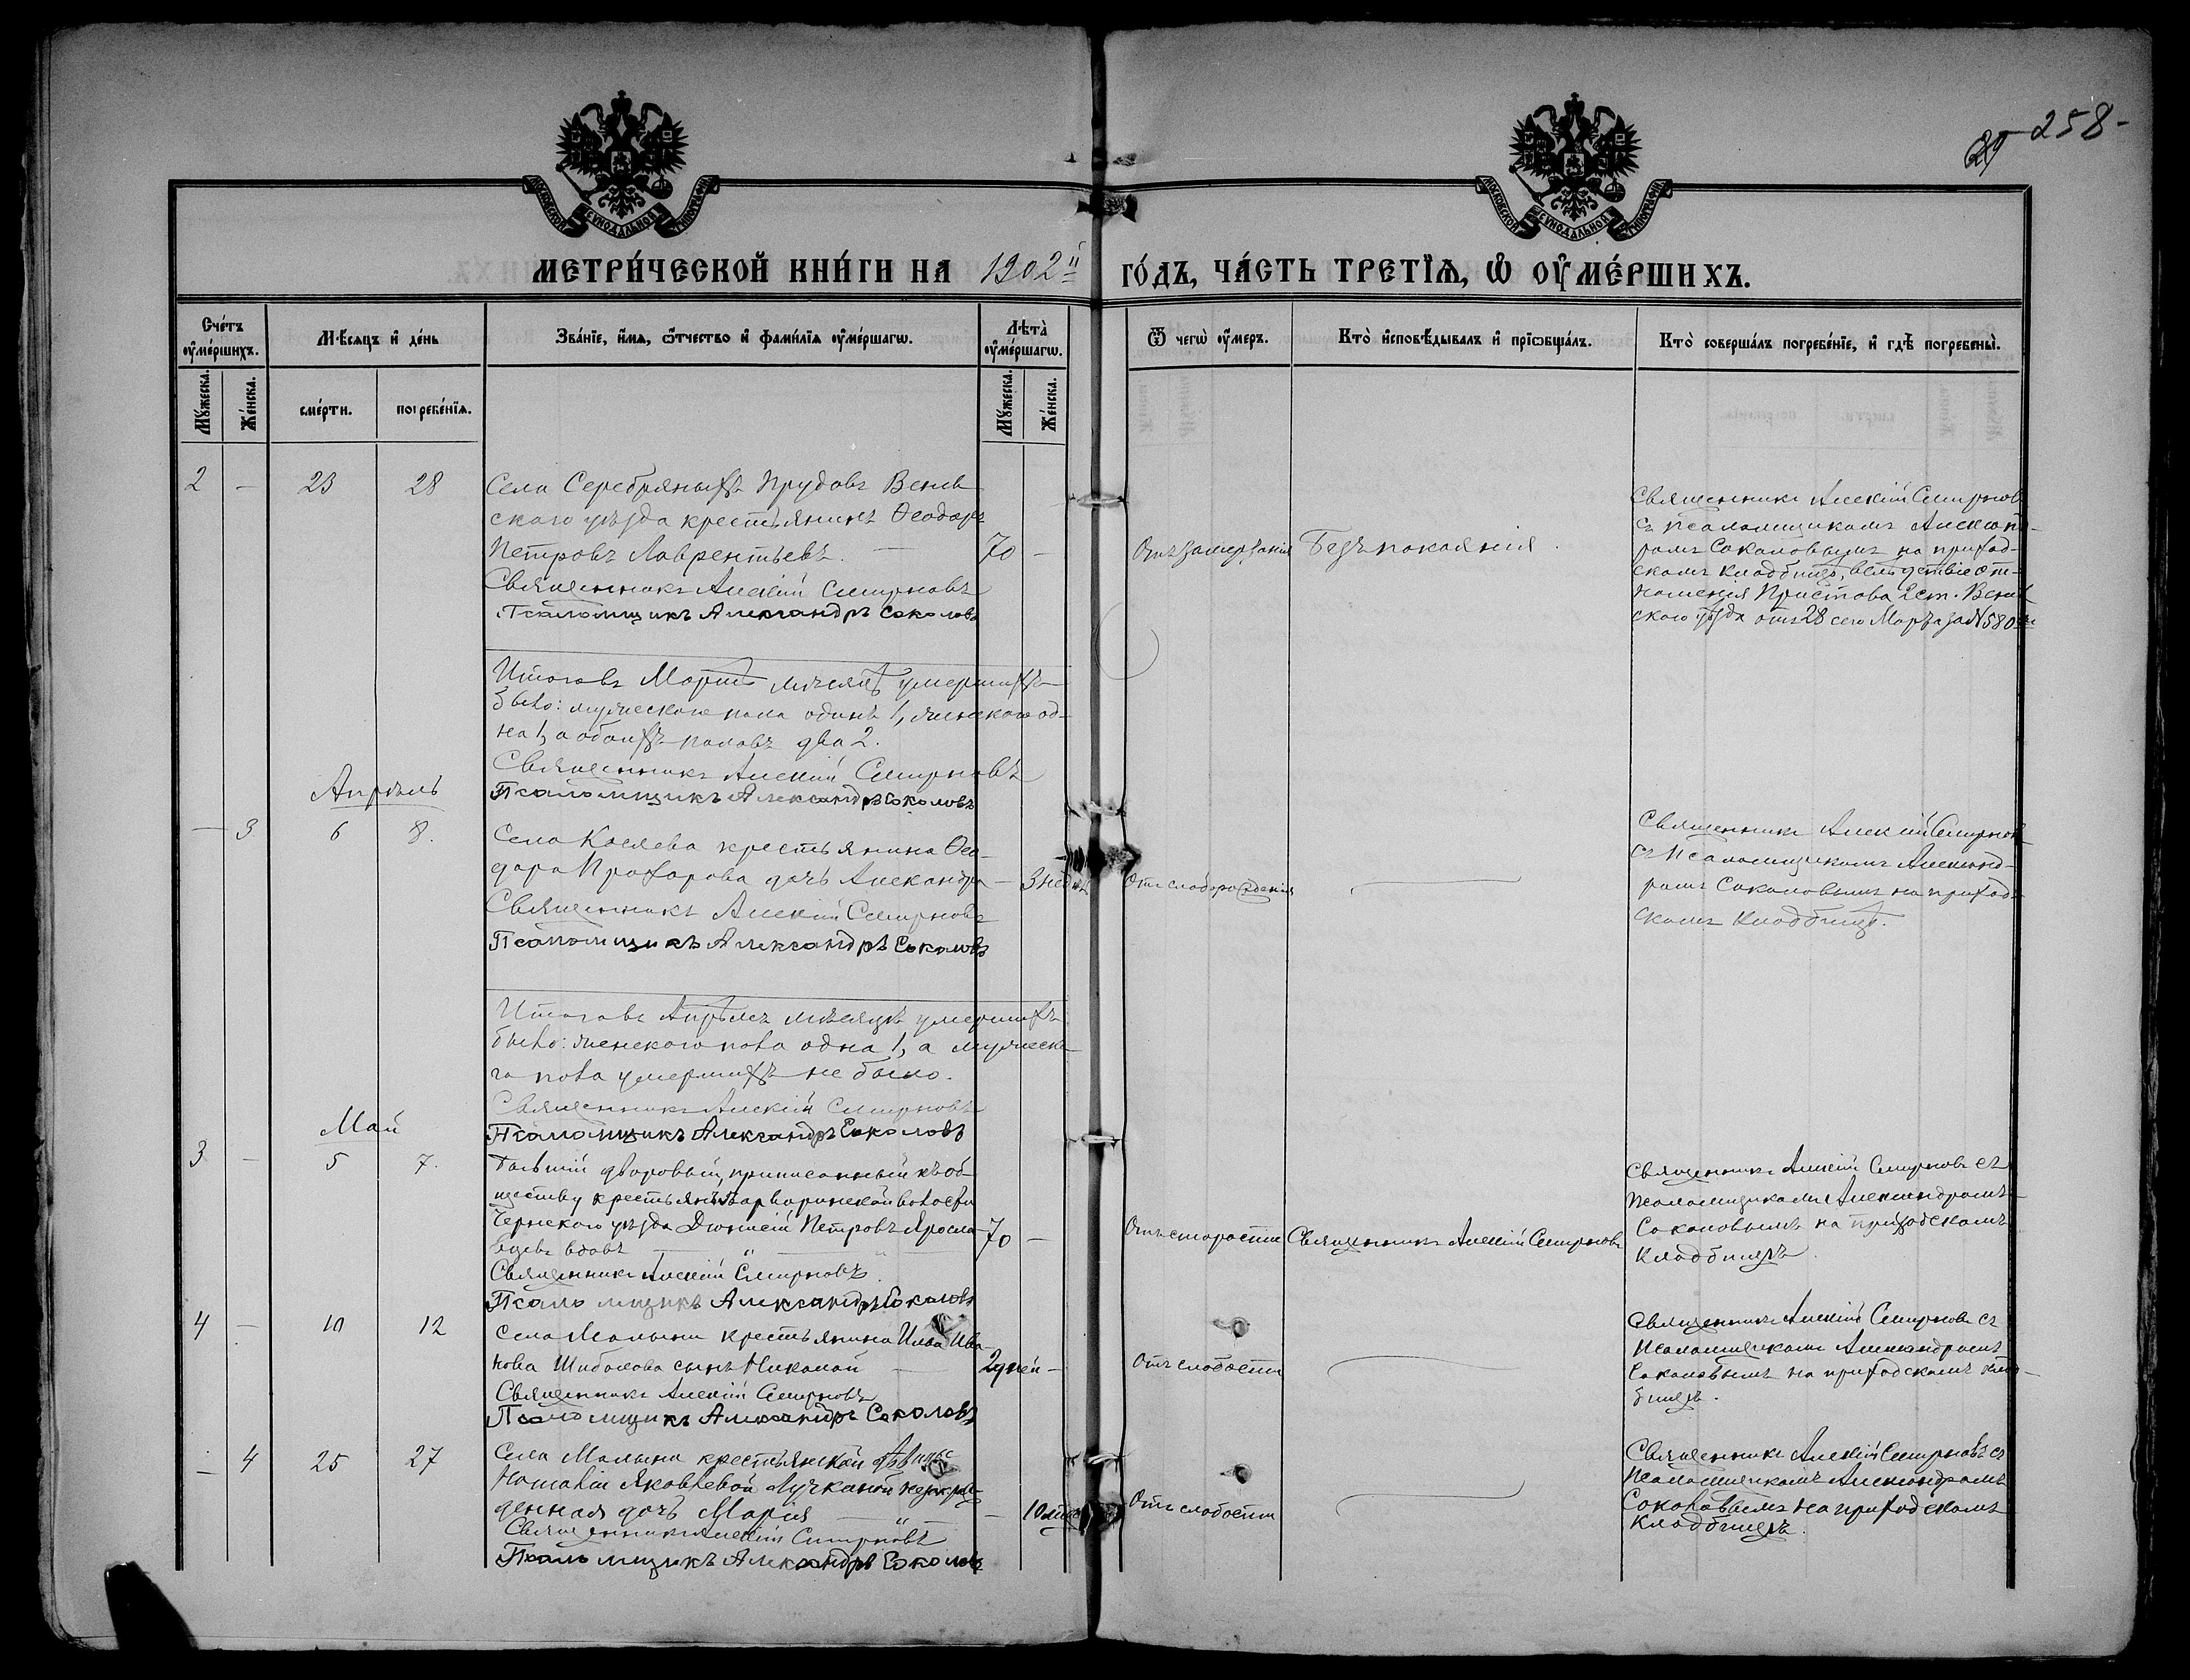 258-
29
МОСКОВСКОЙ СѴНОДАЛЬНОЙ ТИПОГРАФІИ
МОСКОВСКОЙ СѴНОДАЛЬНОЙ ТИПОГРАФІИ
МЕТРИ́ЧЕСКОЙ КНИ́ГИ НА 1902й ГО́ДЪ, ЧА́СТЬ ТРЕТІѦ, Ѡ ОУМЕ́РШИХЪ.
Сче́тъ оуме́ршихъ.
Мѣсяцъ и де́нь
Зва́ніе, имя, ѻтчество и фами́лія оуме́ршагѡ.
Лѣта̀ оуме́ршагѡ.
Ѿ чегѡ̀ оумеръ.
Кто̀ исповѣдывалъ и прїѡбща́лъ.
Кто̀ соверша́лъ погребе́ніе, и гдѣ погребены̀.
Мꙋжеска.
Же́нска.
сме́рти.
погребе́нїя.
Мꙋжеска.
Же́нска.
2 - 23 28
Села Серебряныхъ Прудовъ Венев-
скаго уѣзда крестьянинъ Ѳеодоръ
Петровъ Лаврентьевъ. — 70 -
Священникъ Алексій Смирновъ
Псаломщикъ Александръ Соколовъ
Отъ замерзанія
Безъ покаянія.
Священникъ Алексій Смирновъ
съ псаломщикомъ Александ-
ромъ Соколовымъ на приход-
скомъ кладбищѣ, вслѣдствіе от-
ношенія Пристава 2 ст. Венев
скаго уѣзда отъ 28 сего Марта за № 580
Итого въ Мартѣ мѣсяцѣ умершихъ
было: мужескаго пола одинъ 1, женскаго од-
на 1, а обоихъ половъ два 2.
Священникъ Алексій Смирновъ
Псаломщикъ Александръ Соколовъ
Апрѣль
— 3 6 8.
Села Косяева крестьянина Ѳео-
дора Прохорова дочь Александра — 3 нед
Священникъ Алексій Смирновъ
Псаломщикъ Александръ Соколовъ
Отъ слаборожденія
Священникъ Алексій Смирновъ
съ псаломщикомъ Александ-
ромъ Соколовымъ на приход-
скомъ кладбищѣ.
Итого въ Апрѣлѣ мѣсяцѣ умершихъ
было: женскаго пола одна 1, а мужеска-
го пола умершихъ не было.
Священникъ Алексій Смирновъ
Псаломщикъ Александръ Соколовъ
Май
3 - 5 7.
Бывшій дворовый, приписанный къ об-
ществу крестьянъ Варваринской волости
Чернскаго уѣзда Діонисій Петровъ Яросла
вцевъ вдовъ — 70 -
Священникъ Алексій Смирновъ
Псаломщикъ Александръ Соколовъ
Отъ старости
Священникъ Алексій Смирновъ
Священникъ Алексій Смирновъ съ
псаломщикомъ Александромъ
Соколовымъ на приходскомъ
кладбищѣ.
4 - 10 12
Села Малыни крестьянина Ильи Ива-
нова Шибалова сынъ Николай — 2 дней -
Священникъ Алексій Смирновъ
Псаломщикъ Александръ Соколовъ
Отъ слабости
Священникъ Алексій Смирновъ съ
псаломщикомъ Александромъ
Соколовымъ на приходскомъ клад-
бищѣ.
- 4 25 27
Села Малыни крестьянской дѣвицы
Наталіи Яковлевой Лучкиной незакрож-
денная дочь Марія — 10 мѣс
Священникъ Алексій Смирновъ
Псаломщикъ Александръ Соколовъ
Отъ слабости
Священникъ Алексій Смирновъ съ
псаломщикомъ Александромъ
Соколовымъ на приходскомъ
кладбищѣ.